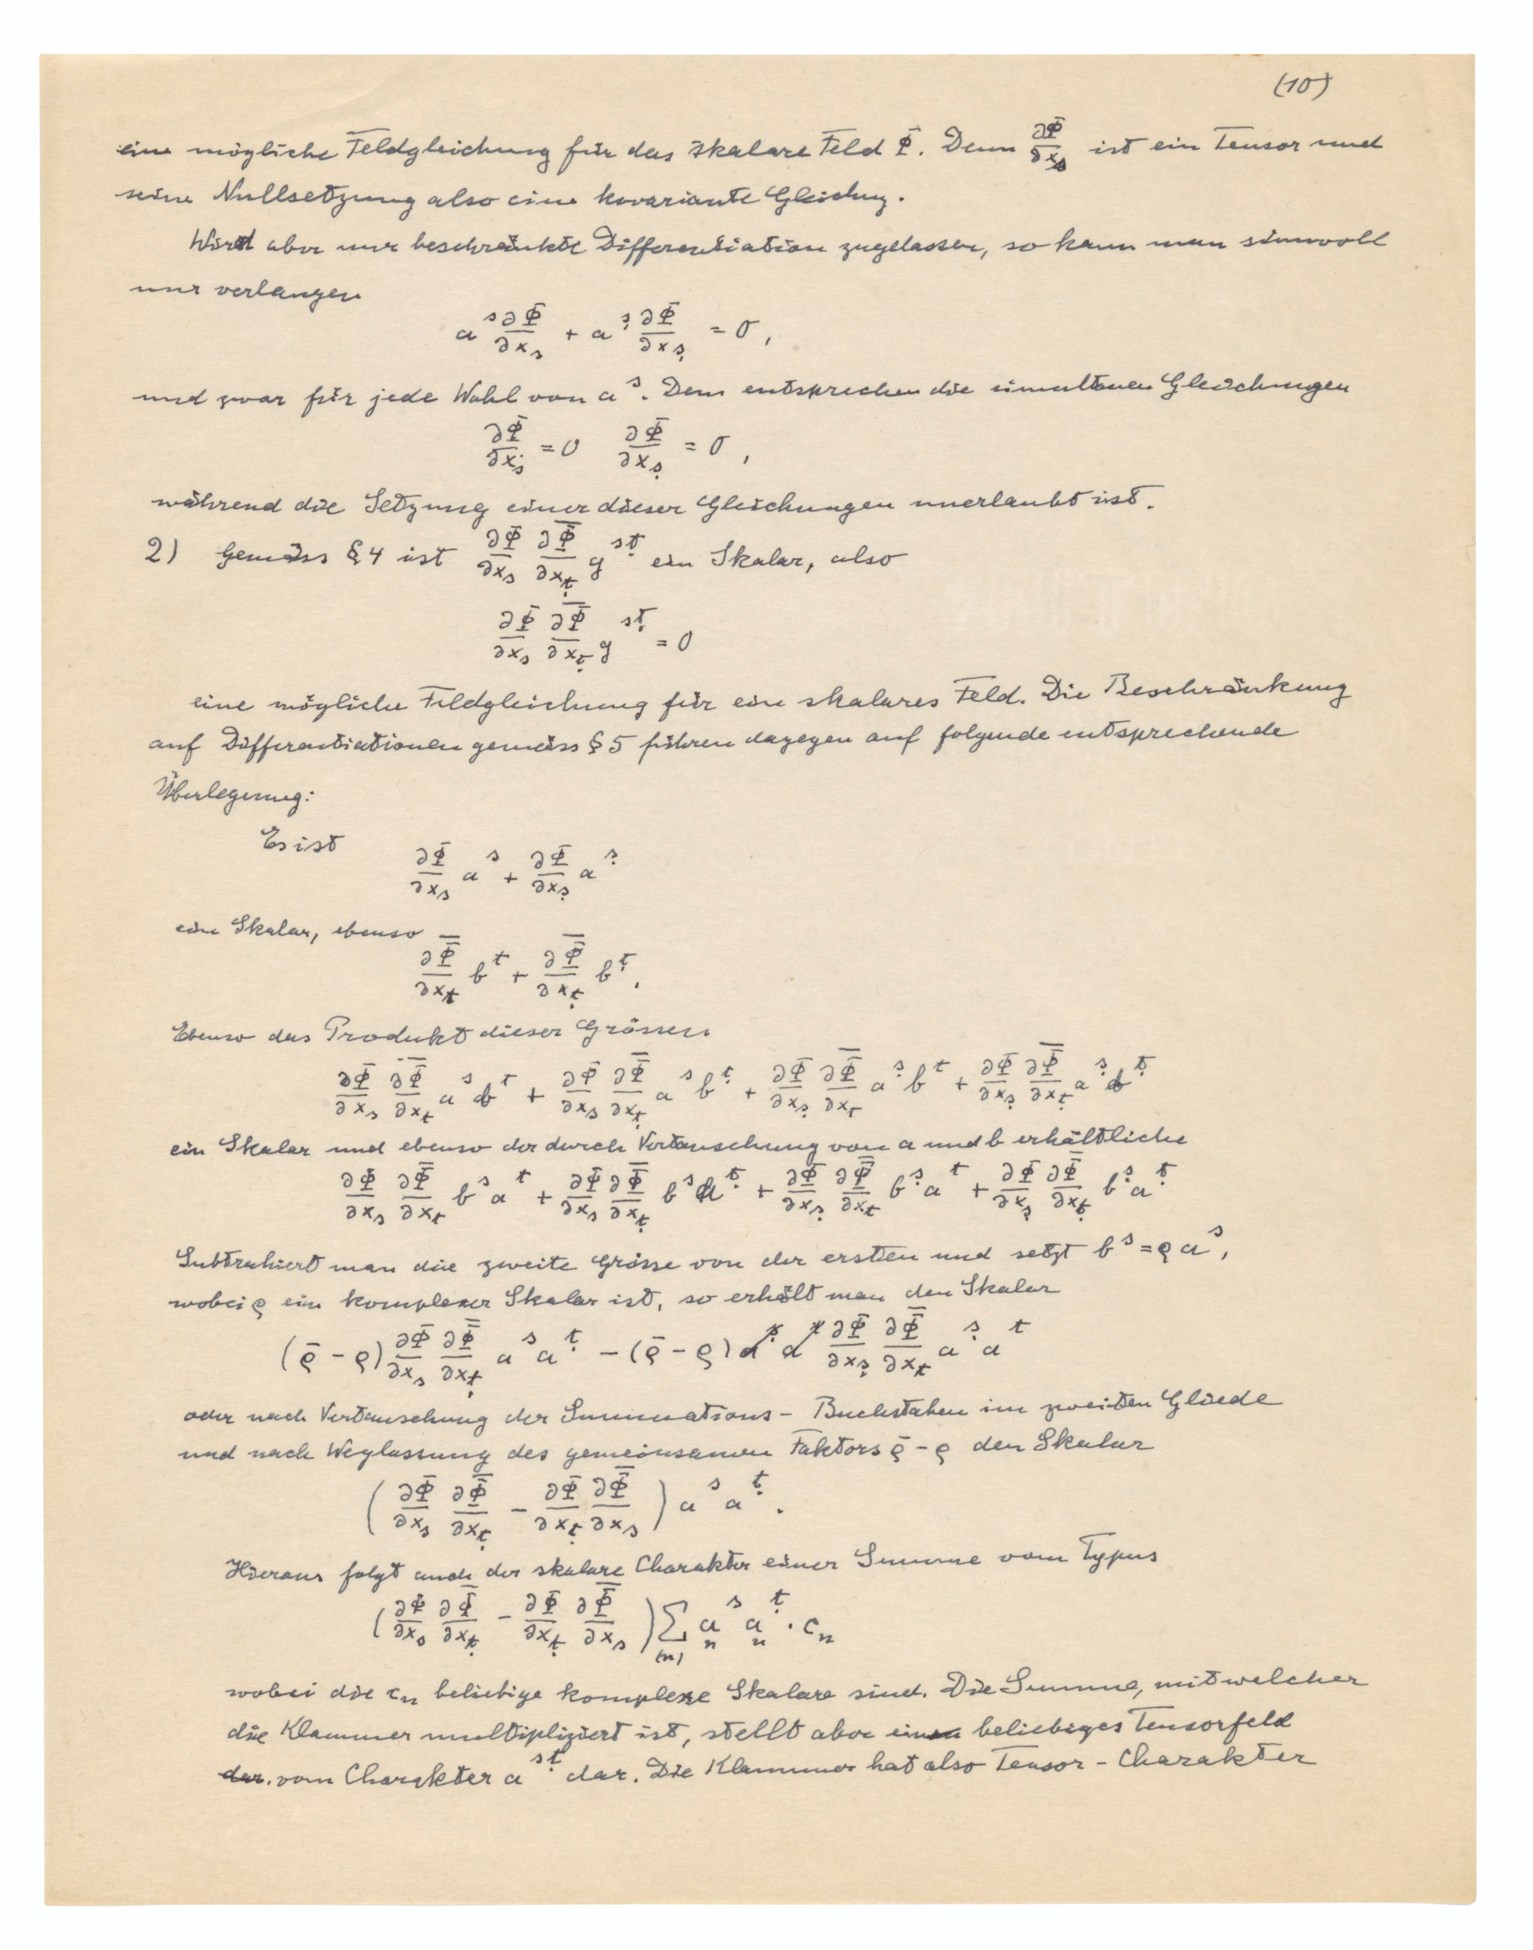 (10)
eine mögliche Feldgleichung für das skalare Feld Φ. Denn ∂Φ/∂x_ṣ ist ein Tensor und
seine Nullsetzung also eine kovariante Gleichung.
Wird aber nur beschränkte Differentiation zugelassen, so kann man sinnvoll
nur verlangen
a^s ∂Φ/∂x_s + a^ṣ ∂Φ/∂x_ṣ = 0,
und zwar für jede Wahl von a^s. Dem entsprechen die simultanen Gleichungen
∂Φ/∂x_s = 0 ∂Φ/∂x_ṣ = 0,
während die Setzung einer dieser Gleichungen unerlaubt ist.
2) Gemäss §4 ist ∂Φ/∂x_s ∂Φ̄/∂x_ṭ g^{sṭ} ein Skalar, also
∂Φ/∂x_s ∂Φ̄/∂x_ṭ g^{sṭ} = 0
eine mögliche Feldgleichung für ein skalares Feld. Die Beschränkung
auf Differentiationen gemäss §5 führen dagegen auf folgende entsprechende
Überlegung:
Es ist
∂Φ/∂x_s a^s + ∂Φ/∂x_ṣ a^ṣ
ein Skalar, ebenso
∂Φ̄/∂x_t b^t + ∂Φ̄/∂x_ṭ b^ṭ.
Ebenso das Produkt dieser Grössen
∂Φ/∂x_s ∂Φ̄/∂x_t a^s b^t + ∂Φ/∂x_s ∂Φ̄/∂x_ṭ a^s b^ṭ + ∂Φ/∂x_ṣ ∂Φ̄/∂x_t a^ṣ b^t + ∂Φ/∂x_ṣ ∂Φ̄/∂x_ṭ a^ṣ b^ṭ
ein Skalar und ebenso der durch Vertauschung von a und b erhältliche
∂Φ/∂x_s ∂Φ̄/∂x_t b^s a^t + ∂Φ/∂x_s ∂Φ̄/∂x_ṭ b^s a^ṭ + ∂Φ/∂x_ṣ ∂Φ̄/∂x_t b^ṣ a^t + ∂Φ/∂x_ṣ ∂Φ̄/∂x_ṭ b^ṣ a^ṭ
Subtrahiert man die zweite Grösse von der ersten und setzt b^s = ϱ a^s,
wobei ϱ ein komplexer Skalar ist, so erhält man den Skalar
(ϱ̄ - ϱ) ∂Φ/∂x_s ∂Φ̄/∂x_ṭ a^s a^ṭ - (ϱ̄ - ϱ) ∂Φ/∂x_ṣ ∂Φ̄/∂x_t a^ṣ a^t
oder nach Vertauschung der Summations-Buchstaben im zweiten Gliede
und nach Weglassung des gemeinsamen Faktors ϱ̄ - ϱ den Skalar
(∂Φ/∂x_s ∂Φ̄/∂x_ṭ - ∂Φ/∂x_ṭ ∂Φ̄/∂x_s) a^s a^ṭ.
Hieraus folgt auch der skalare Charakter einer Summe vom Typus
(∂Φ/∂x_s ∂Φ̄/∂x_ṭ - ∂Φ/∂x_ṭ ∂Φ̄/∂x_s) ∑_(n) a_n^s a_n^ṭ · c_n
wobei die c_n beliebige komplexe Skalare sind. Die Summe, mit welcher
die Klammer multipliziert ist, stellt aber ein beliebiges Tensorfeld
dar. vom Charakter a^{sṭ} dar. Die Klammer hat also Tensor-Charakter